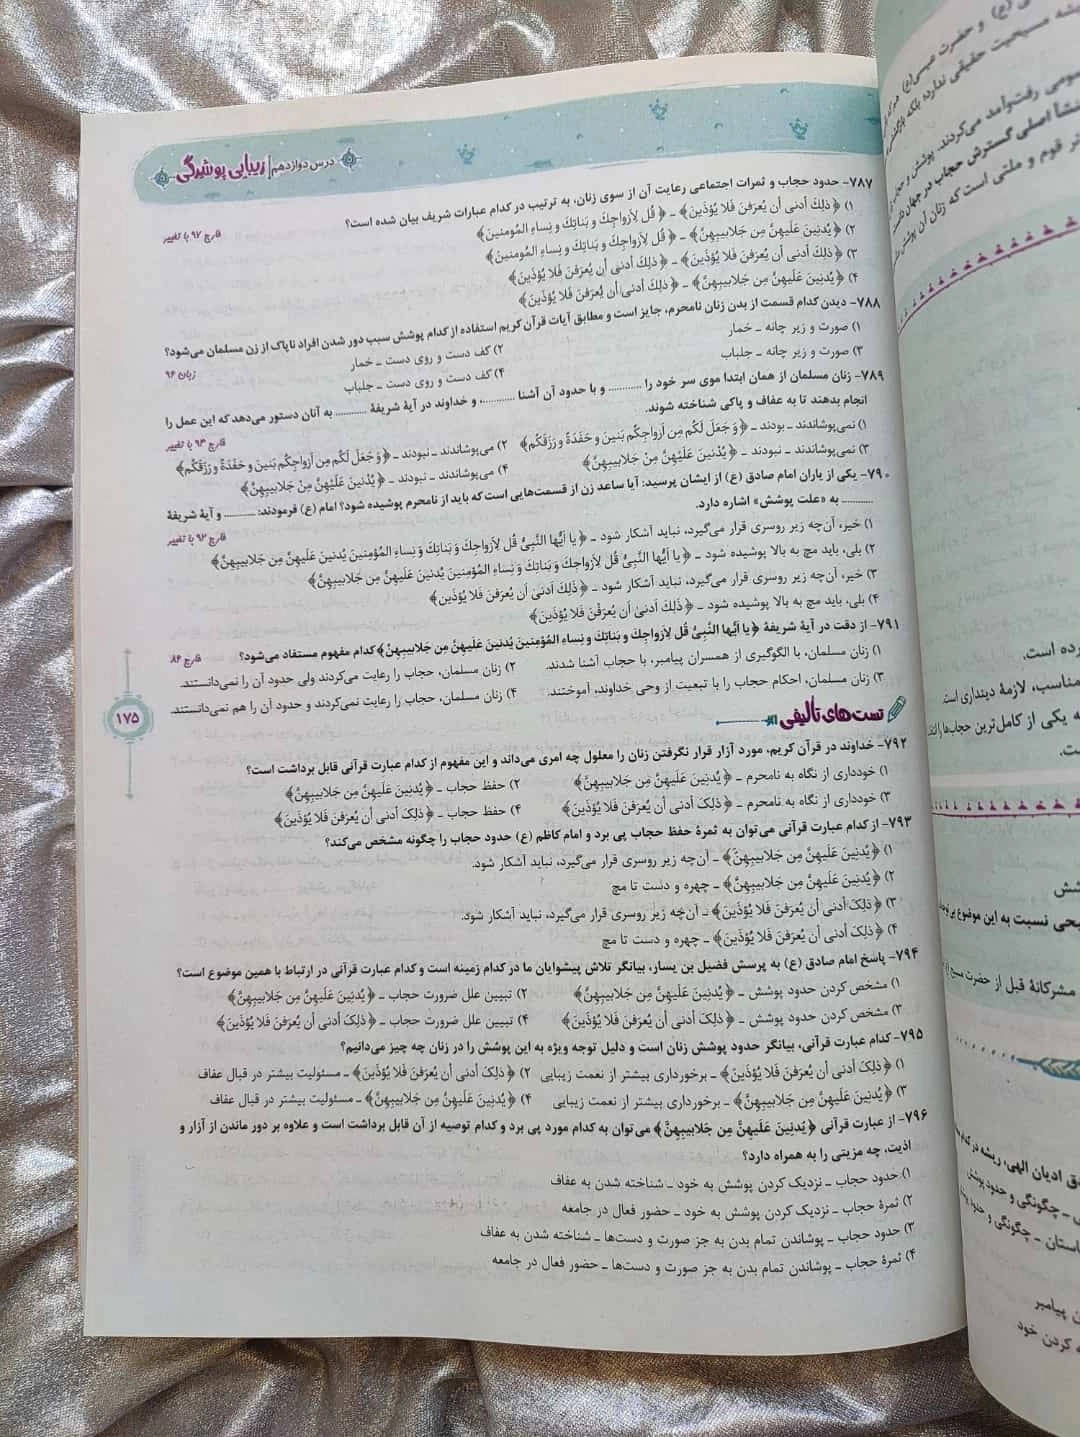 درس دوازدهم/ زیبایی پوشیدگی
۷۸۷- حدود حجاب و ثمرات اجتماعی رعایت آن از سوی زنان، به ترتیب در کدام عبارات شریف بیان شده است؟
خارج ۹۷ با تغییر
۱) ﴿ذلِكَ أدنی أن یُعرَفنَ فَلا یُؤذَینَ﴾ ـ ﴿قُل لِأزواجِكَ و بَناتِكَ و نِساءِ المُومنینَ﴾
۲) ﴿یُدنینَ عَلَیهِنَّ مِن جَلابیبِهِنَّ﴾ ـ ﴿قُل لِأزواجِكَ وَ بَناتِكَ و نِساءِ المُومنینَ﴾
۳) ﴿ذلِكَ أدنی أن یُعرَفنَ فَلا یُؤذَینَ﴾ ـ ﴿ذلِكَ أدنی أن یُعرَفنَ فَلا یُؤذَینَ﴾
۴) ﴿یُدنینَ عَلَیهِنَّ مِن جَلابیبِهِنَّ﴾ ـ ﴿ذلِكَ أدنی أن یُعرَفنَ فَلا یُؤذَینَ﴾
۷۸۸- دیدن کدام قسمت از بدن زنان نامحرم، جایز است و مطابق آیات قرآن کریم استفاده از کدام پوشش سبب دور شدن افراد ناپاک از زن مسلمان می‌شود؟
زبان ۹۶
۱) صورت و زیر چانه ـ خمار ۲) کف دست و روی دست ـ خمار
۳) صورت و زیر چانه ـ جلباب ۴) کف دست و روی دست ـ جلباب
۷۸۹- زنان مسلمان از همان ابتدا موی سر خود را .......... و با حدود آن آشنا ..........، و خداوند در آیهٔ شریفهٔ .......... به آنان دستور می‌دهد که این عمل را
انجام بدهند تا به عفاف و پاکی شناخته شوند.
خارج ۹۳ با تغییر
۱) نمی‌پوشاندند ـ بودند ـ ﴿وَ جَعَلَ لَكُم مِن أزواجِكُم بَنینَ و حَفَدَةً و رَزَقَكُم﴾ ۲) می‌پوشاندند ـ نبودند ـ ﴿وَ جَعَلَ لَكُم مِن أزواجِكُم بَنینَ و حَفَدَةً و رَزَقَكُم﴾
۳) نمی‌پوشاندند ـ نبودند ـ ﴿یُدْنینَ عَلَیْهِنَّ مِنْ جَلابیبِهِنَّ﴾ ۴) می‌پوشاندند ـ نبودند ـ ﴿یُدْنینَ عَلَیهِنَّ مِنْ جَلابیبِهِنَّ﴾
۷۹۰- یکی از یاران امام صادق (ع) از ایشان پرسید: آیا ساعد زن از قسمت‌هایی است که باید از نامحرم پوشیده شود؟ امام (ع) فرمودند: .......... و آیهٔ شریفهٔ
.......... به «علت پوشش» اشاره دارد.
خارج ۹۲ با تغییر
۱) خیر، آن‌چه زیر روسری قرار می‌گیرد، نباید آشکار شود ـ ﴿یا أیُّها النَّبِیُّ قُل لِأزواجِكَ وَ بَناتِكَ وَ نِساءِ المُؤمِنینَ یُدنینَ عَلَیهِنَّ مِن جَلابیبِهِنَّ﴾
۲) بلی، باید مچ به بالا پوشیده شود ـ ﴿یا أیُّها النَّبِیُّ قُل لِأزواجِكَ وَ بَناتِكَ وَ نِساءِ المُؤمِنینَ یُدنینَ عَلَیهِنَّ مِن جَلابیبِهِنَّ﴾
۳) خیر، آن‌چه زیر روسری قرار می‌گیرد، نباید آشکار شود ـ ﴿ذلِكَ أدنیٰ أن یُعرَفنَ فَلا یُؤذَین﴾
۴) بلی، باید مچ به بالا پوشیده شود ـ ﴿ذلِكَ أدنیٰ أن یُعرَفْنَ فَلا یُؤذَینَ﴾
۷۹۱- از دقت در آیهٔ شریفهٔ ﴿یا أیُّها النَّبِیُّ قُل لِأزواجِكَ و بَناتِكَ و نِساءِ المُؤمِنینَ یُدنینَ عَلَیهِنَّ مِن جَلابیبِهِنَّ﴾ کدام مفهوم مستفاد می‌شود؟
خارج ۸۶
۱) زنان مسلمان، با الگوگیری از همسران پیامبر، با حجاب آشنا شدند. ۲) زنان مسلمان، حجاب را رعایت می‌کردند ولی حدود آن را نمی‌دانستند.
۳) زنان مسلمان، احکام حجاب را با تبعیت از وحی خداوند، آموختند. ۴) زنان مسلمان، حجاب را رعایت نمی‌کردند و حدود آن را هم نمی‌دانستند.
۱۷۵
تست‌های تألیفی
۷۹۲- خداوند در قرآن کریم، مورد آزار قرار نگرفتن زنان را معلول چه امری می‌داند و این مفهوم از کدام عبارت قرآنی قابل برداشت است؟
۱) خودداری از نگاه به نامحرم ـ ﴿یُدنینَ عَلَیهِنَّ مِن جَلابیبِهِنَّ﴾ ۲) حفظ حجاب ـ ﴿یُدنینَ عَلَیهِنَّ مِن جَلابیبِهِنَّ﴾
۳) خودداری از نگاه به نامحرم ـ ﴿ذلِکَ أدنی أن یُعرَفنَ فَلا یُؤذَینَ﴾ ۴) حفظ حجاب ـ ﴿ذلِکَ أدنی أن یُعرَفنَ فَلا یُؤذَینَ﴾
۷۹۳- از کدام عبارت قرآنی می‌توان به ثمرهٔ حفظ حجاب پی برد و امام کاظم (ع) حدود حجاب را چگونه مشخص می‌کند؟
۱) ﴿یُدنِینَ عَلَیهِنَّ مِن جَلابیبِهِنَّ﴾ ـ آن‌چه زیر روسری قرار می‌گیرد، نباید آشکار شود.
۲) ﴿یُدنِینَ عَلَیهِنَّ مِن جَلابیبِهِنَّ﴾ ـ چهره و دست تا مچ
۳) ﴿ذلِکَ أدنی أن یُعرَفنَ فَلا یُؤذَینَ﴾ ـ آن‌چه زیر روسری قرار می‌گیرد، نباید آشکار شود.
۴) ﴿ذلِکَ أدنی أن یُعرَفنَ فَلا یُؤذَینَ﴾ ـ چهره و دست تا مچ
۷۹۴- پاسخ امام صادق (ع) به پرسش فضیل بن یسار، بیانگر تلاش پیشوایان ما در کدام زمینه است و کدام عبارت قرآنی در ارتباط با همین موضوع است؟
۱) مشخص کردن حدود پوشش ـ ﴿یُدنِینَ عَلَیهِنَّ مِن جَلابیبِهِنَّ﴾ ۲) تبیین علل ضرورت حجاب ـ ﴿یُدنِینَ عَلَیهِنَّ مِن جَلابیبِهِنَّ﴾
۳) مشخص کردن حدود پوشش ـ ﴿ذلِکَ أدنی أن یُعرَفنَ فَلا یُؤذَینَ﴾ ۴) تبیین علل ضرورت حجاب ـ ﴿ذلِکَ أدنی أن یُعرَفنَ فَلا یُؤذَینَ﴾
۷۹۵- کدام عبارت قرآنی، بیانگر حدود پوشش زنان است و دلیل توجه ویژه به این پوشش را در زنان چه چیز می‌دانیم؟
۱) ﴿ذلِکَ أدنی أن یُعرَفنَ فَلا یُؤذَینَ﴾ ـ برخورداری بیشتر از نعمت زیبایی ۲) ﴿ذلِکَ أدنی أن یُعرَفنَ فَلا یُؤذَینَ﴾ ـ مسئولیت بیشتر در قبال عفاف
۳) ﴿یُدنِینَ عَلَیهِنَّ مِن جَلابیبِهِنَّ﴾ ـ برخورداری بیشتر از نعمت زیبایی ۴) ﴿یُدنِینَ عَلَیهِنَّ مِن جَلابیبِهِنَّ﴾ ـ مسئولیت بیشتر در قبال عفاف
۷۹۶- از عبارت قرآنی ﴿یُدنِینَ عَلَیهِنَّ مِن جَلابیبِهِنَّ﴾ می‌توان به کدام مورد پی برد و کدام توصیه از آن قابل برداشت است و علاوه بر دور ماندن از آزار و
اذیت، چه مزیتی را به همراه دارد؟
۱) حدود حجاب ـ نزدیک کردن پوشش به خود ـ شناخته شدن به عفاف
۲) ثمرهٔ حجاب ـ نزدیک کردن پوشش به خود ـ حضور فعال در جامعه
۳) حدود حجاب ـ پوشاندن تمام بدن به جز صورت و دست‌ها ـ شناخته شدن به عفاف
۴) ثمرهٔ حجاب ـ پوشاندن تمام بدن به جز صورت و دست‌ها ـ حضور فعال در جامعه
و حضرت عیسی(ع)
مسیحیت حقیقی ندارد؛ بلکه
رفت‌وآمد می‌کردند. پوشش و
منشأ اصلی گسترش حجاب در جهان
قوم و ملتی است که زنان آن
رده است.
مناسب، لازمهٔ دینداری است.
یکی از کامل‌ترین حجاب‌ها را
ست.
شش
نسبت به این موضوع
مشرکانهٔ قبل از حضرت
ادیان الهی، ریشه در
چگونگی و حدود پوشش
چگونگی و حدود
پیامبر
کردن خود